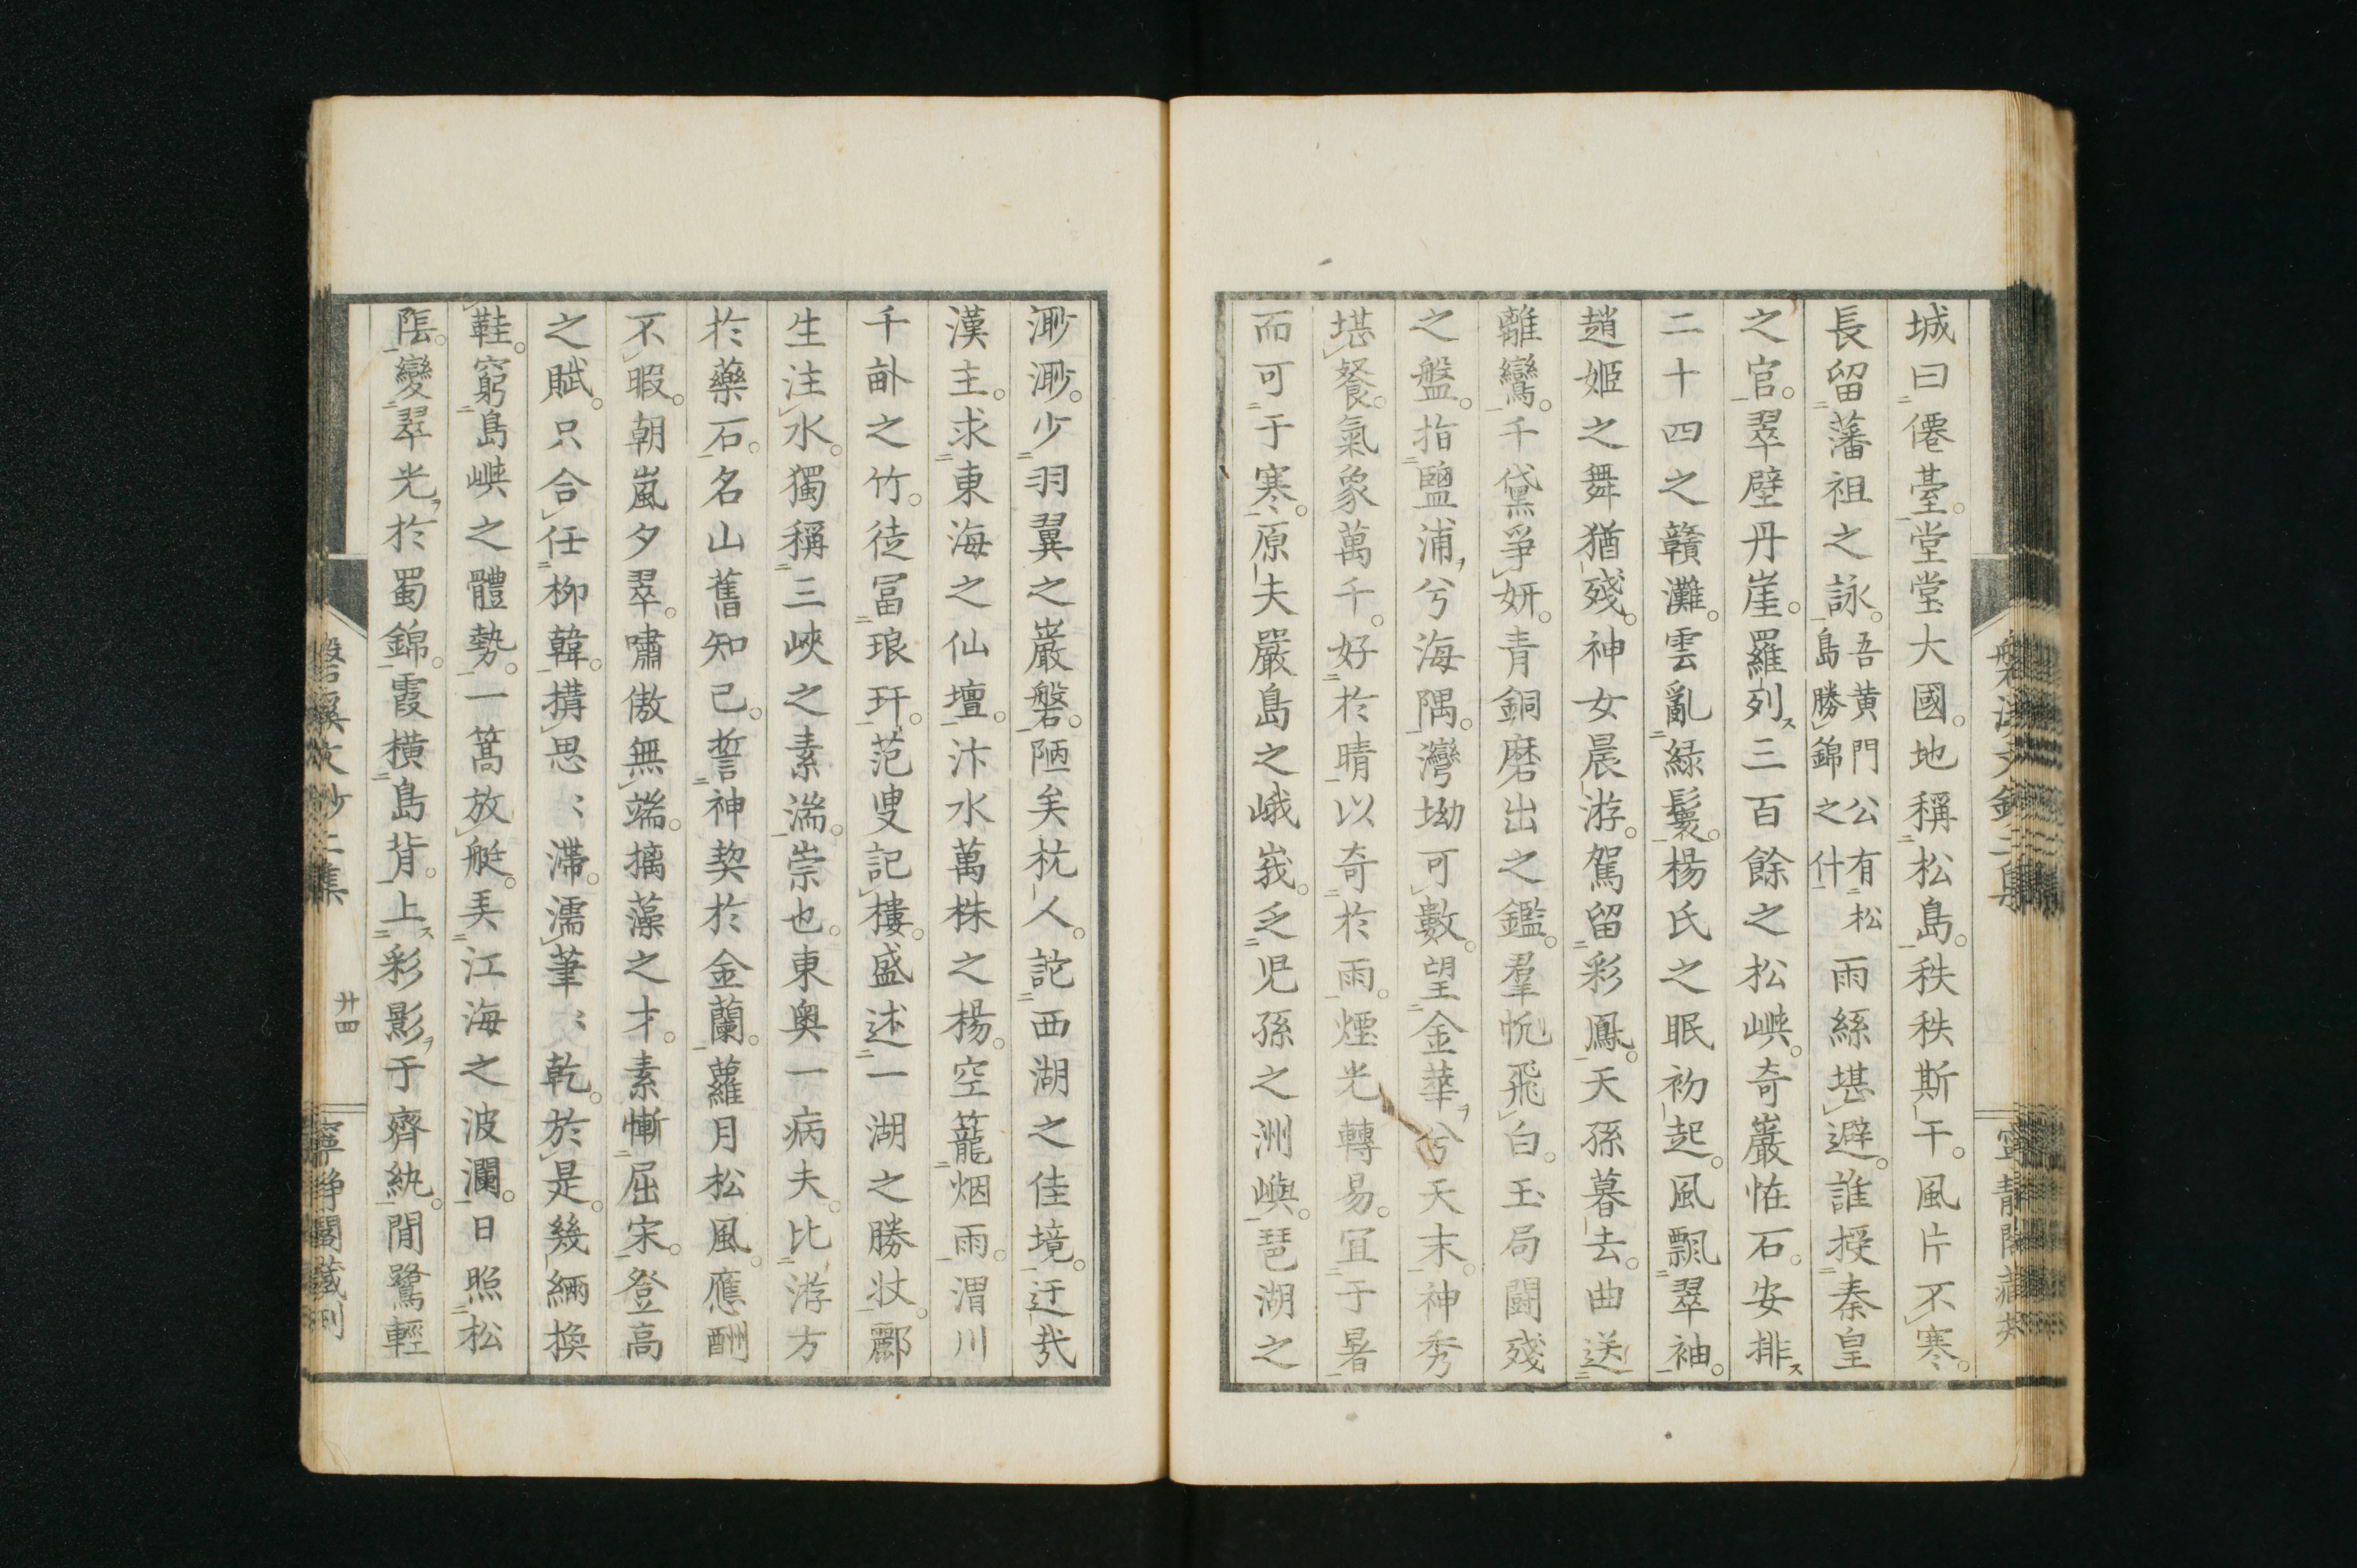 城曰僊臺。堂堂大國。地稱松島。秩秩斯干。風片不寒。
長留藩祖之詠。吾黄門公有松島勝錦之什雨絲堪避。誰授秦皇
之官。翠壁丹崖。羅列ス三百餘之松嶼。奇巖恠石。安排ス
二十四之贛灘。雲亂緑鬟。楊氏之眠初起。風飄翠袖。
趙姬之舞猶殘。神女晨游。駕留彩鳳。天孫暮去。曲送
離鸞。千黛爭妍。青銅磨出之鑑。羣帆飛白。玉局鬪殘
之盤。指鹽浦ヲ兮海隅。灣坳可數。望金華ヲ兮天末。神秀
堪餐。氣象萬千。好於晴以奇於雨。煙光轉易。冝于暑
而可于寒。原夫嚴島之峨峩。乏児孫之洲嶼。琶湖之
渺渺。少羽翼之巖磐。陋矣杭人。詑西湖之佳境。迂哉
漢主。求東海之仙壇。汴水萬株之楊。空籠烟雨。渭川
千畝之竹。徒冨琅玕。范叟記樓。盛述一湖之勝状。酈
生注水。獨稱三峽之素湍。崇也。東奥一病夫。比游方
於藥石。名山舊知己。誓神契於金蘭。蘿月松風。應酬
不暇。朝嵐夕翠。嘯傲無端。摛藻之才。素慚屈宋。登高
之賦。只合任柳韓。搆思〻滯。濡筆〻乾。於是。幾緉換
鞋。窮島嶼之體勢。一篙放艇。弄江海之波瀾。日照松
隖。變翠光ヲ於蜀錦。霞横島背。上ス彩影ヲ于齊紈。閒鷺輕
磐溪文鈔二集
廿四
寧靜閣藏刊